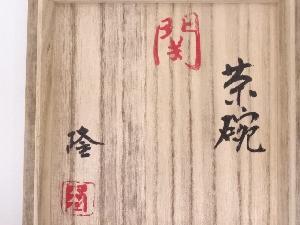 茶碗
関
隆